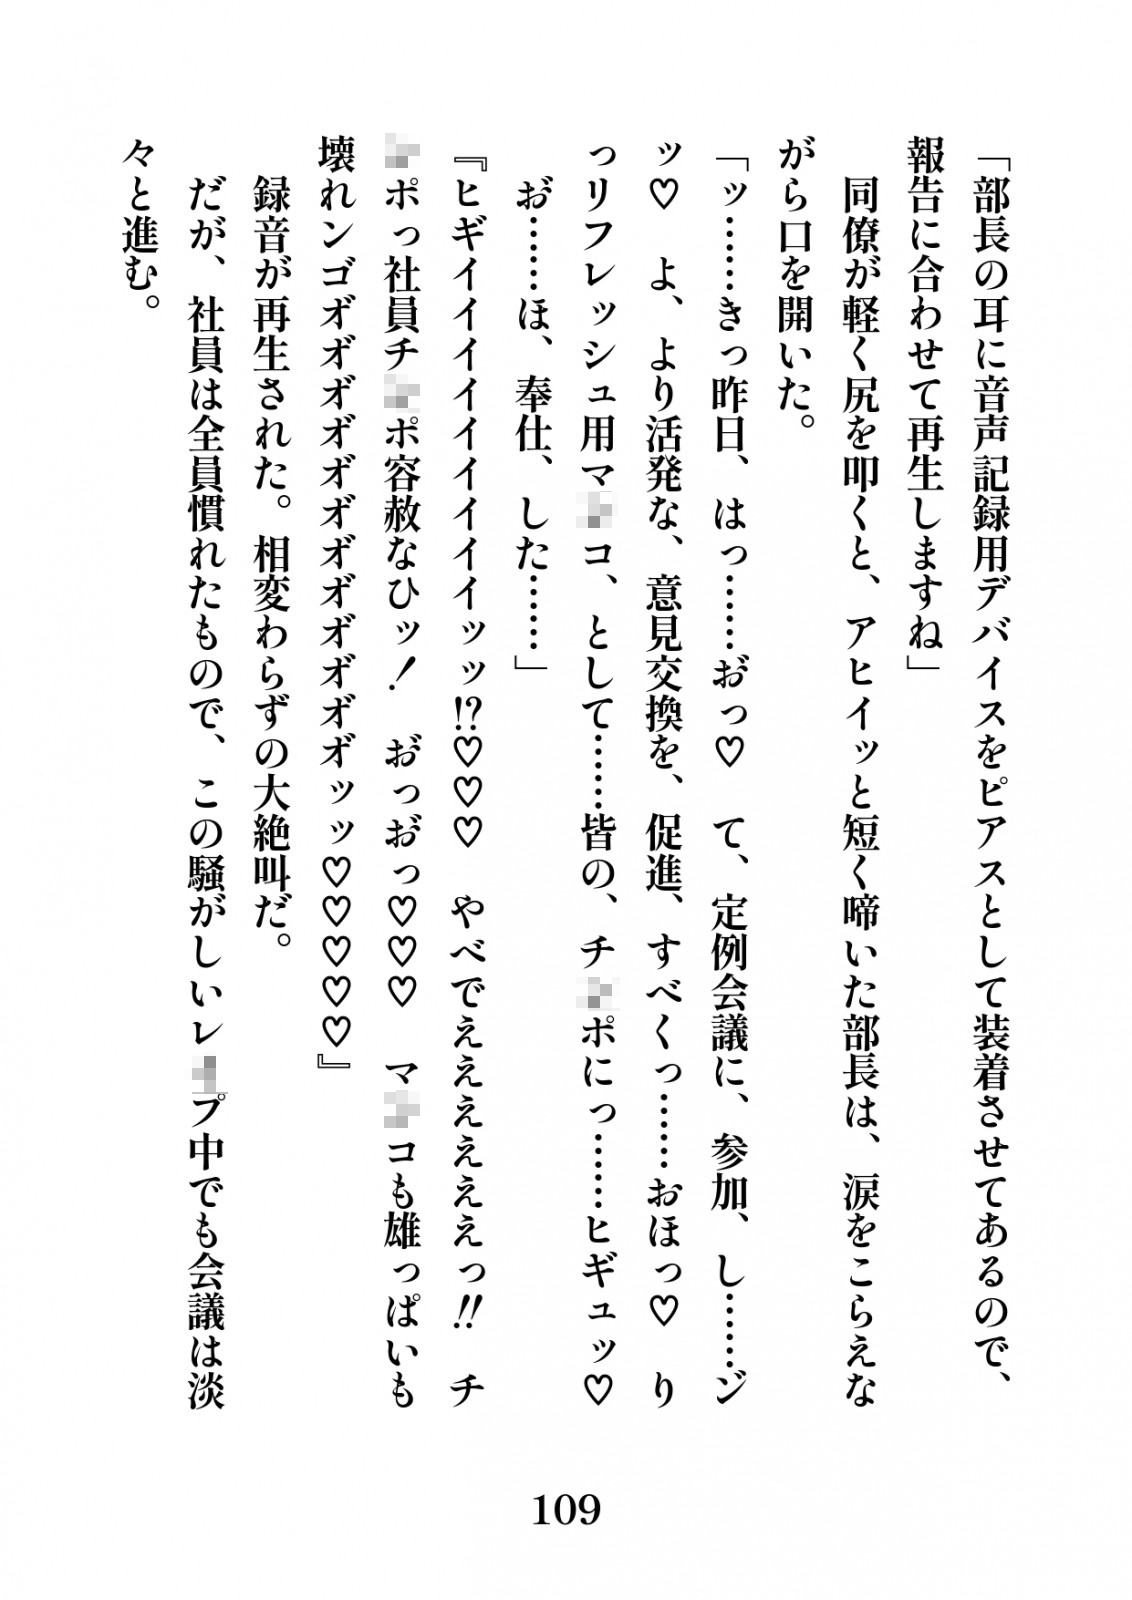 「部長の耳に音声記録用デバイスをピアスとして装着させてあるので、
報告に合わせて再生しますね」
同僚が軽く尻を叩くと、アヒイッと短く啼いた部長は、涙をこらえな
がら口を開いた。
「ッ……きっ昨日、はっ……お゙っ♡　て、定例会議に、参加、し……ジ
ッ♡　よ、より活発な、意見交換を、促進、すべくっ……おほっ♡　り
っリフレッシュ用マコ、として……皆の、チポにっ……ヒギュッ♡
お゙……ほ、奉仕、した……」
『ヒギイイイイイイイイイッッ!?♡♡♡　やべでえええええええっ!!　チ
ポっ社員チポ容赦なひッ！　お゙っお゙っ♡♡♡　マコも雄っぱいも
壊れンゴオ゙オ゙オ゙オ゙オ゙オ゙オ゙オ゙オ゙オ゙オ゙オ゙ッッ♡♡♡♡♡』
録音が再生された。相変わらずの大絶叫だ。
だが、社員は全員慣れたもので、この騒がしいレプ中でも会議は淡
々と進む。
109